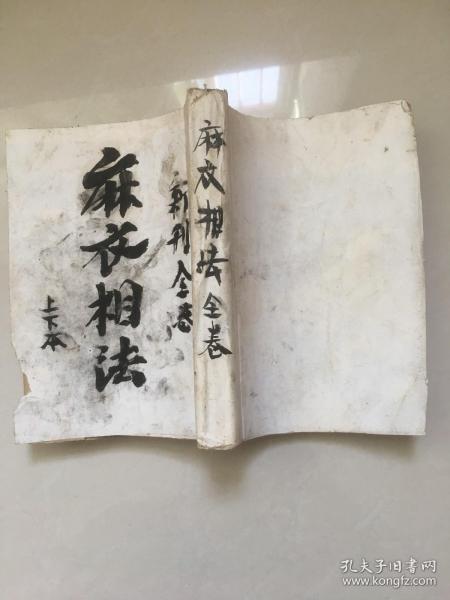 麻衣相法
新刊全卷
上下本
麻衣相法全卷
孔夫子旧书网
www.kongfz.com